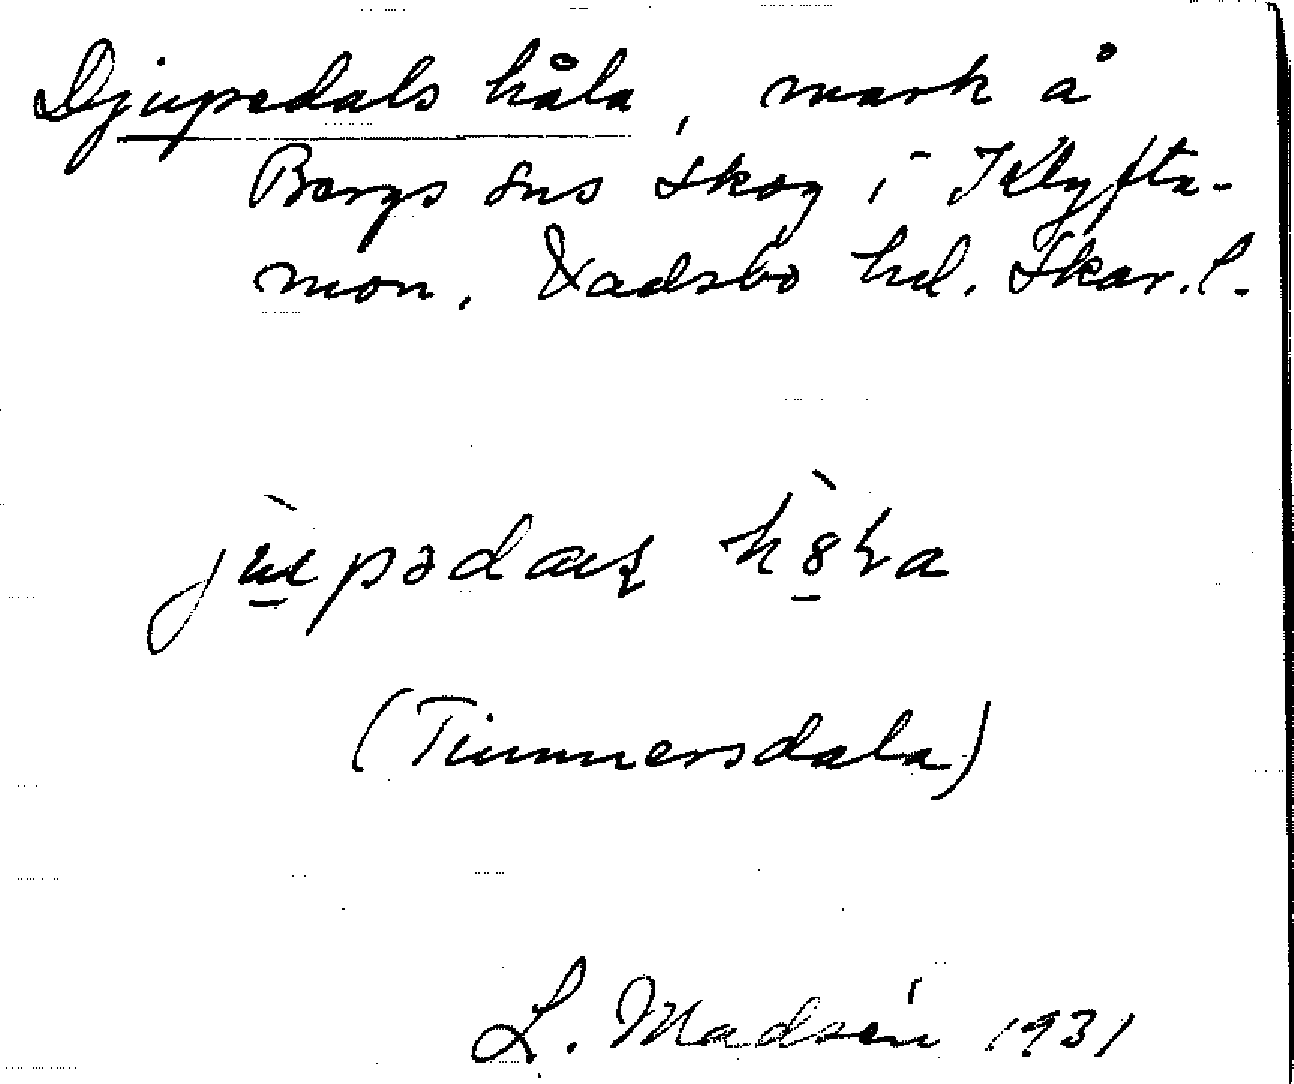 Djupedals håla, mark å
Bergs sns skog i Klyfta-
mon. Vadsbo hd. Skar.l.
(Timmersdala)
L. Madsén 1931